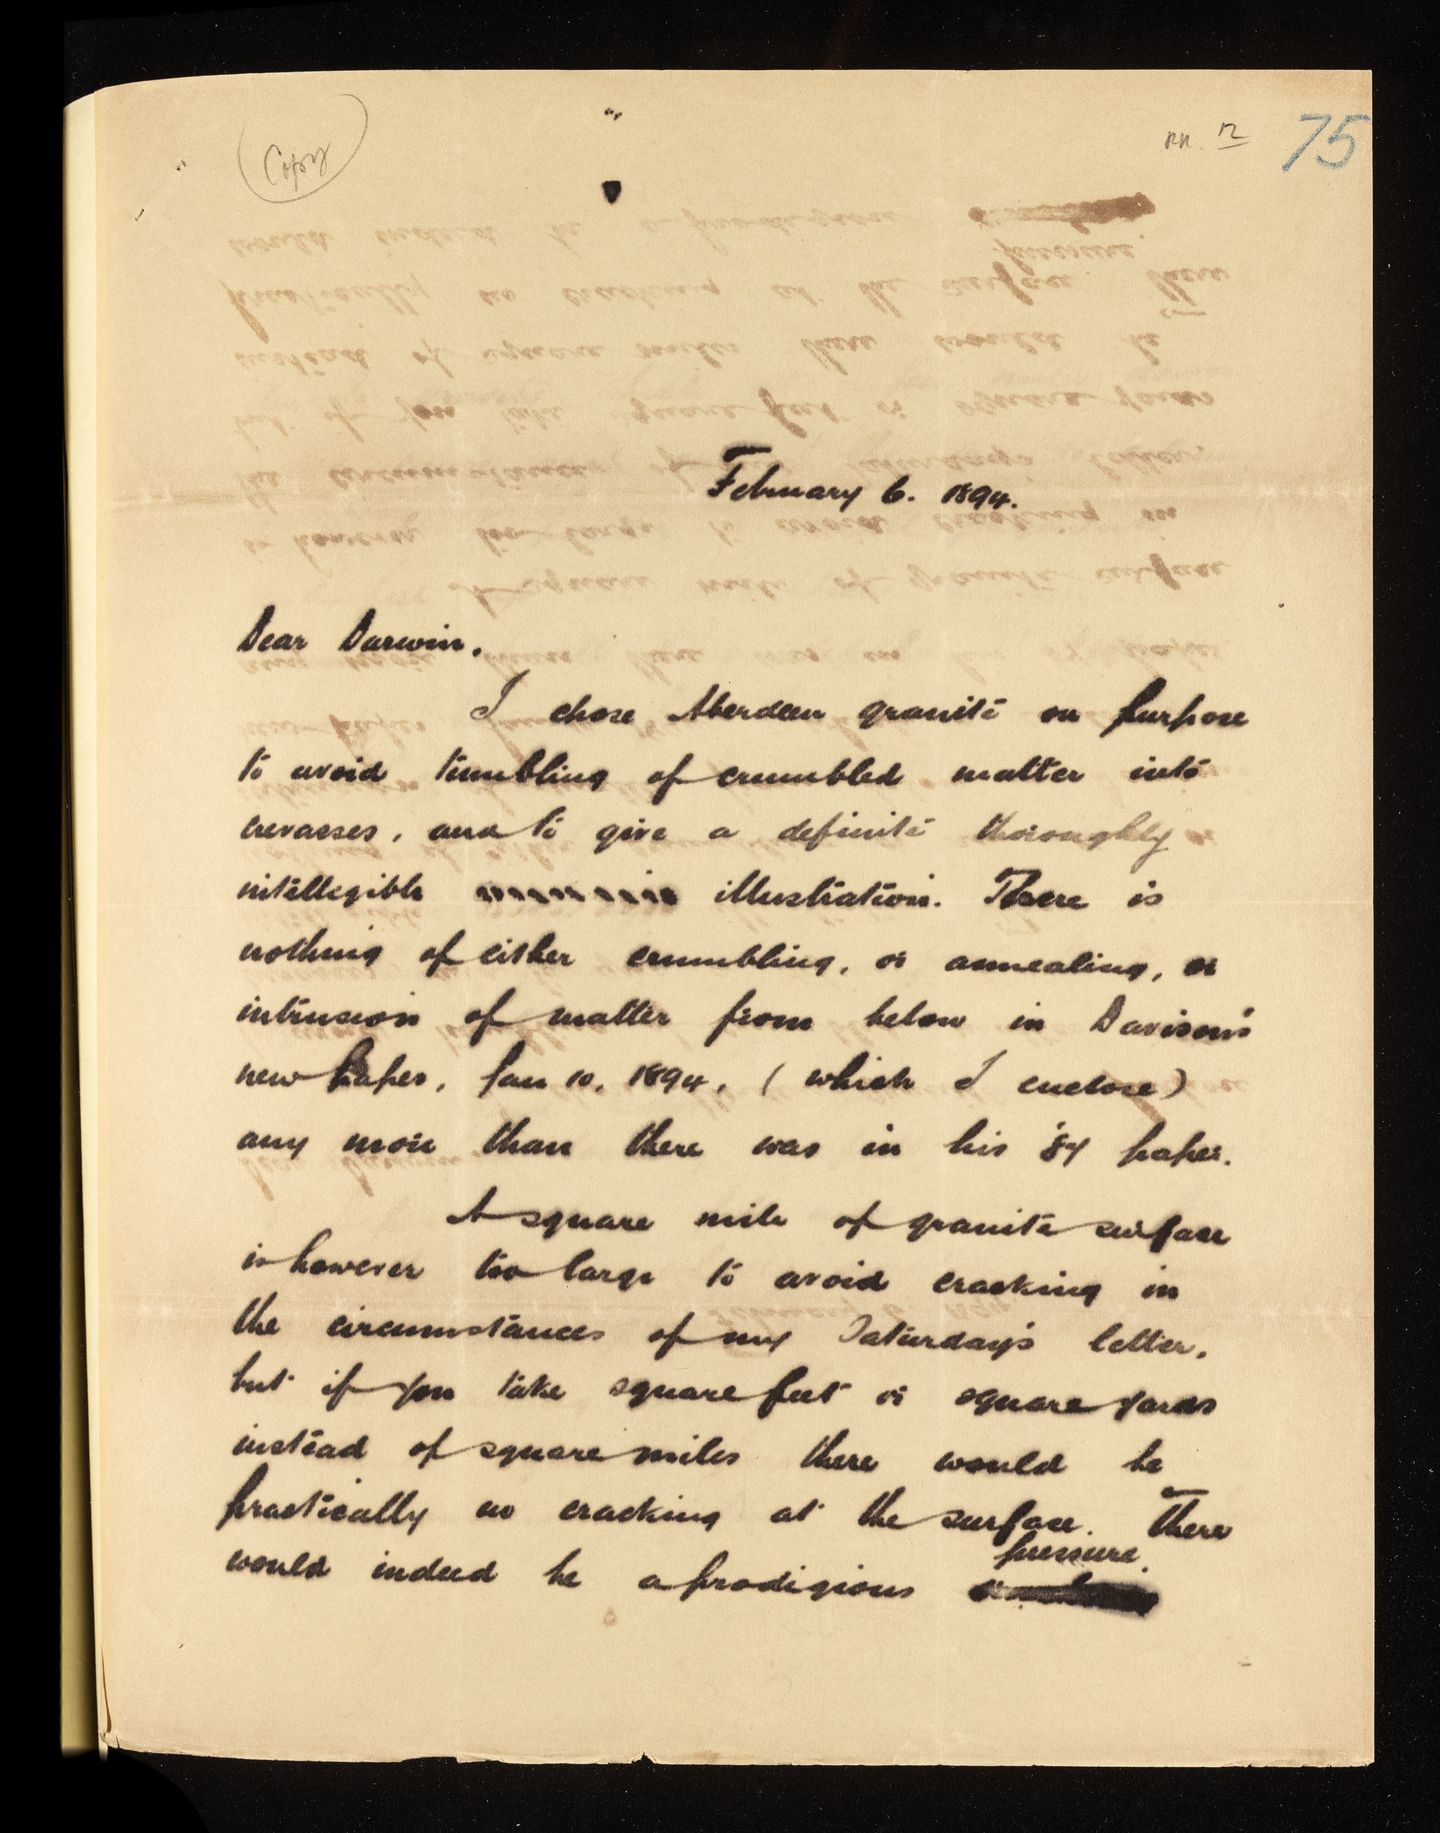 (Copy)
75
February 6. 1894.
Dear Darwin,
I chose Aberdeen granite on purpose
to avoid tumbling of crumbled matter into
crevasses, and to give a definite thoroughly
intellegible illustration. There is
nothing of either crumbling, or annealing, or
intrusion of matter from below in Davison's
new paper, Jan 10, 1894, (which I enclose)
any more than there was in his '87 paper.
A square mile of granite surface
is however too large to avoid cracking in
the circumstances of my Saturday's letter,
but if you take square feet or square yards
instead of square miles there would be
practically no cracking at the surface. There
would indeed be a prodigious pressure.